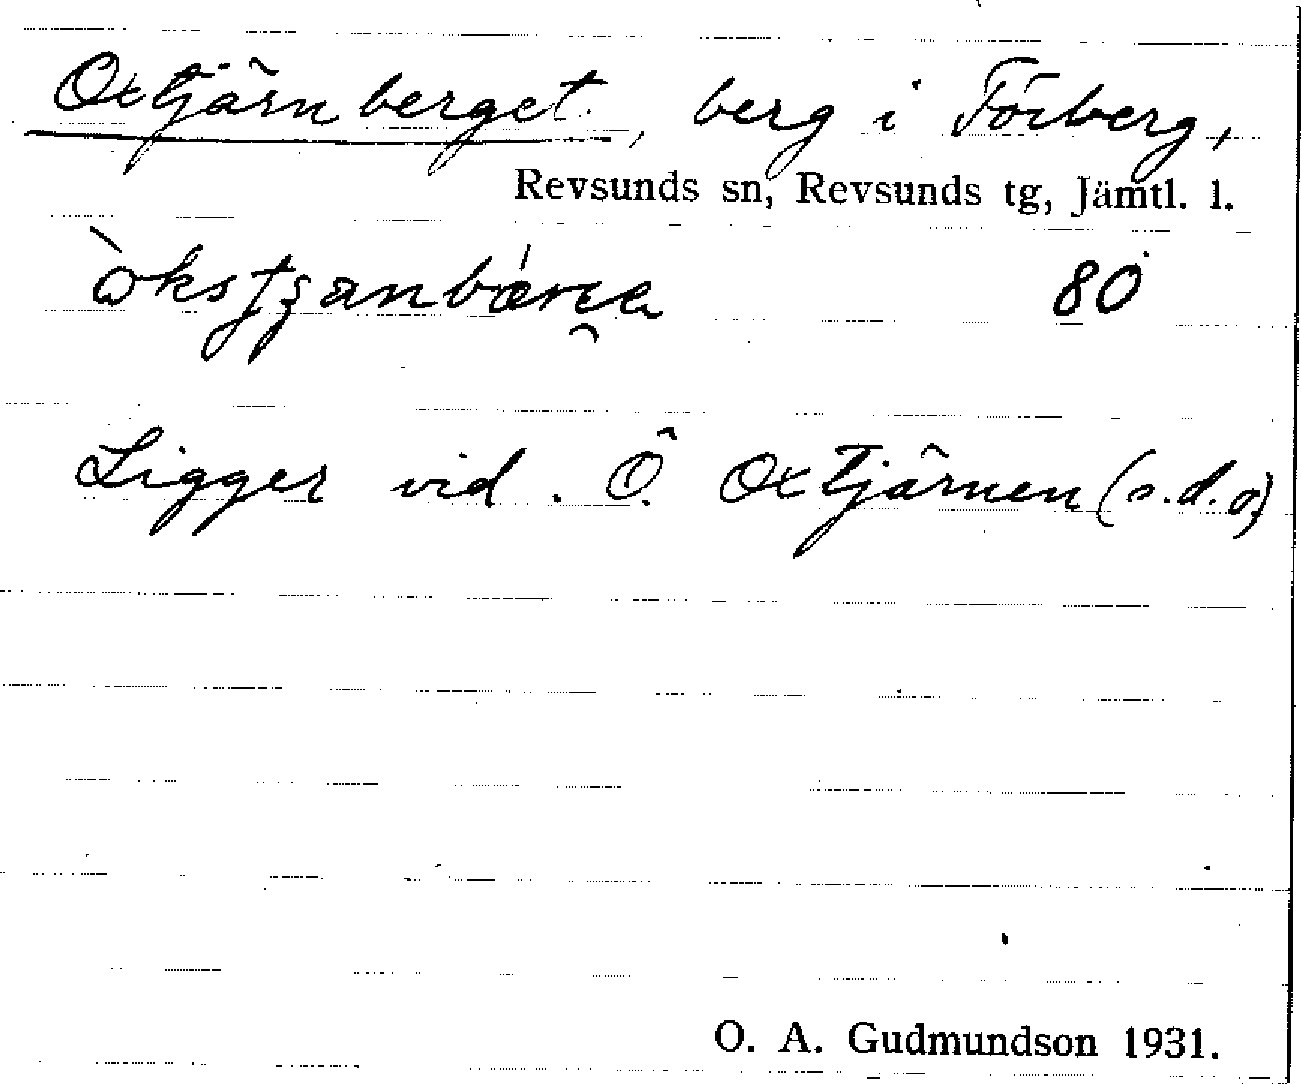 Oxtjärnberget, berg i Förberg,
Revsunds sn, Revsunds tg, Jämtl. l.
80
Ligger vid. Ö. Oxtjärnen (s.d.o)
O. A. Gudmundson 1931.